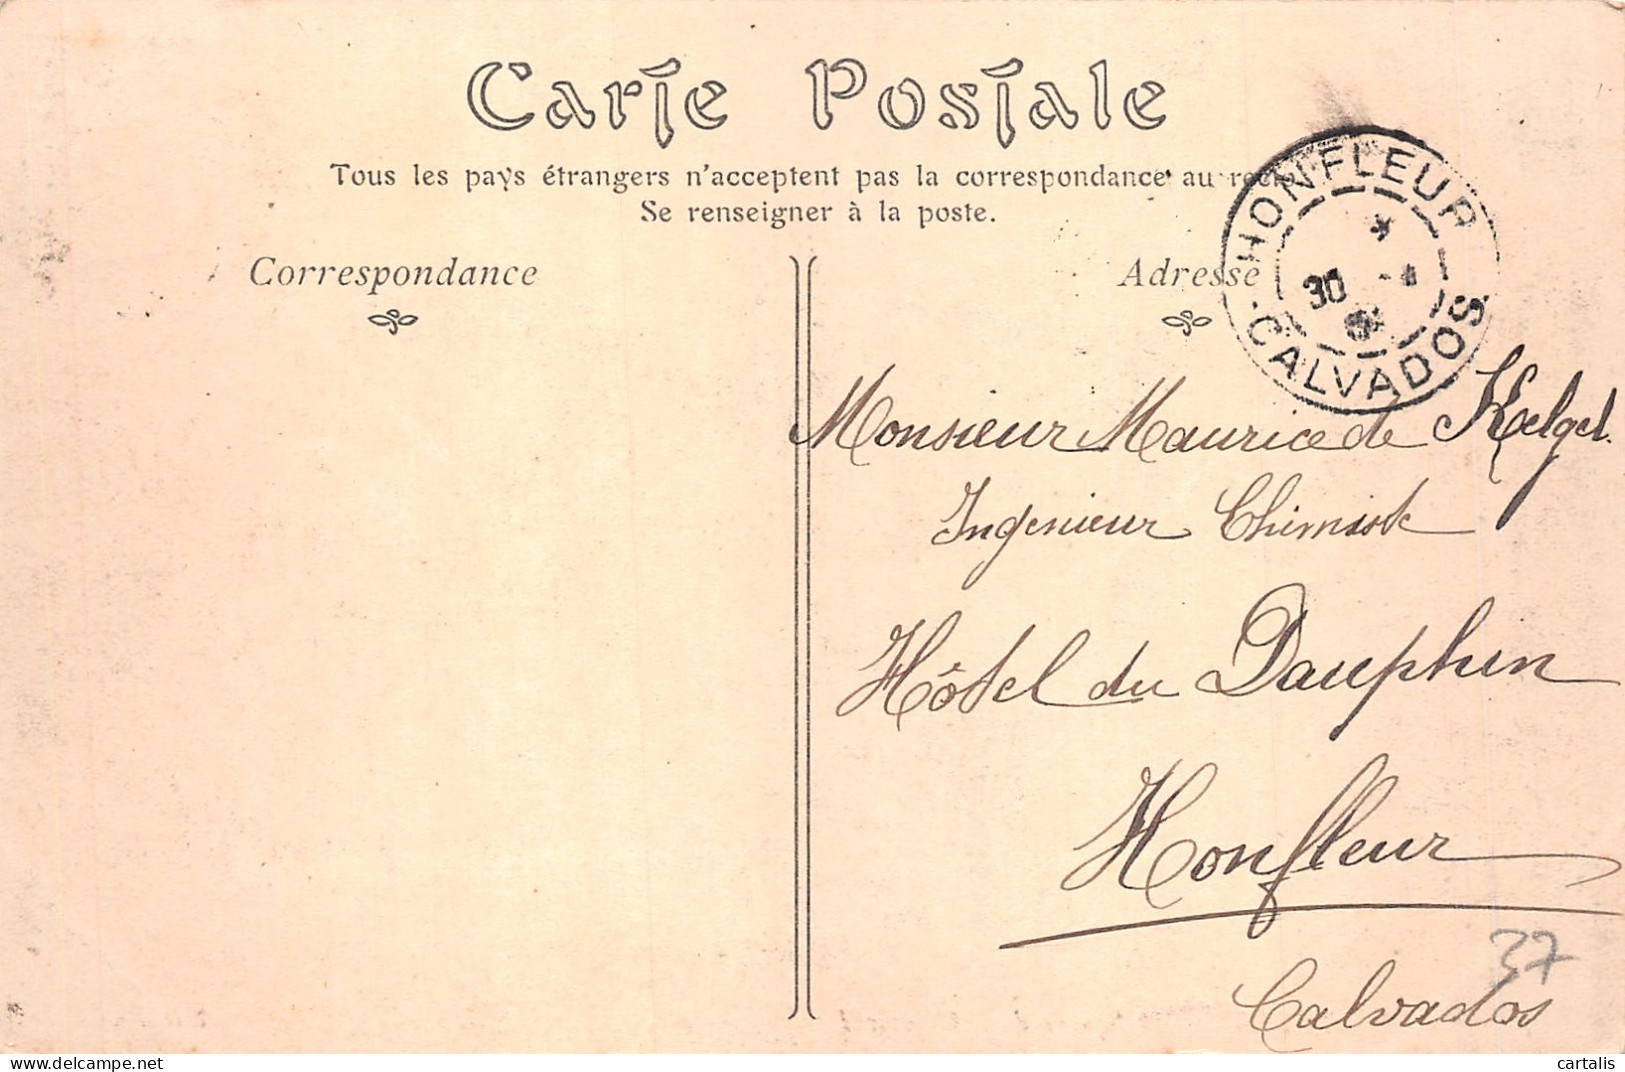 Carte Postale
Tous les pays étrangers n'acceptent pas la correspondance au recto
Se renseigner à la poste.
Correspondance
Adresse
HONFLEUR
30
CALVADOS
Monsieur Maurice de
Ingenieur Chimiste
Hôtel du Dauphin
Honfleur
37
Calvados
cartalis